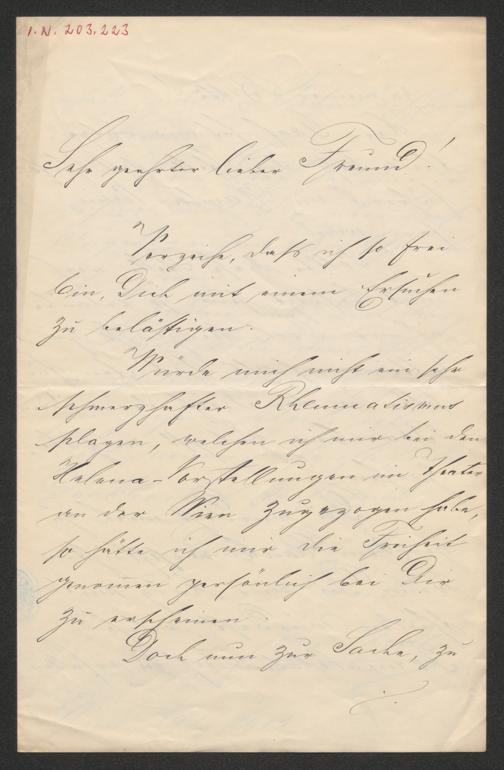 I. N. 203.223
Sehr geehrter lieber Freund!
Verzeihe, dass ich so frei
bin, Dich mit einem Ersuchen
zu belästigen.
Würde mich nicht ein sehr
schmerzhafter Rheumatismus
plagen, welchen ich mir bei den
Helena-Vorstellungen im Theater
an der Wien zugezogen habe,
so hätte ich mir die Freiheit
genommen persönlich bei Dir
zu erscheinen.
Doch nun zur Sache, zu